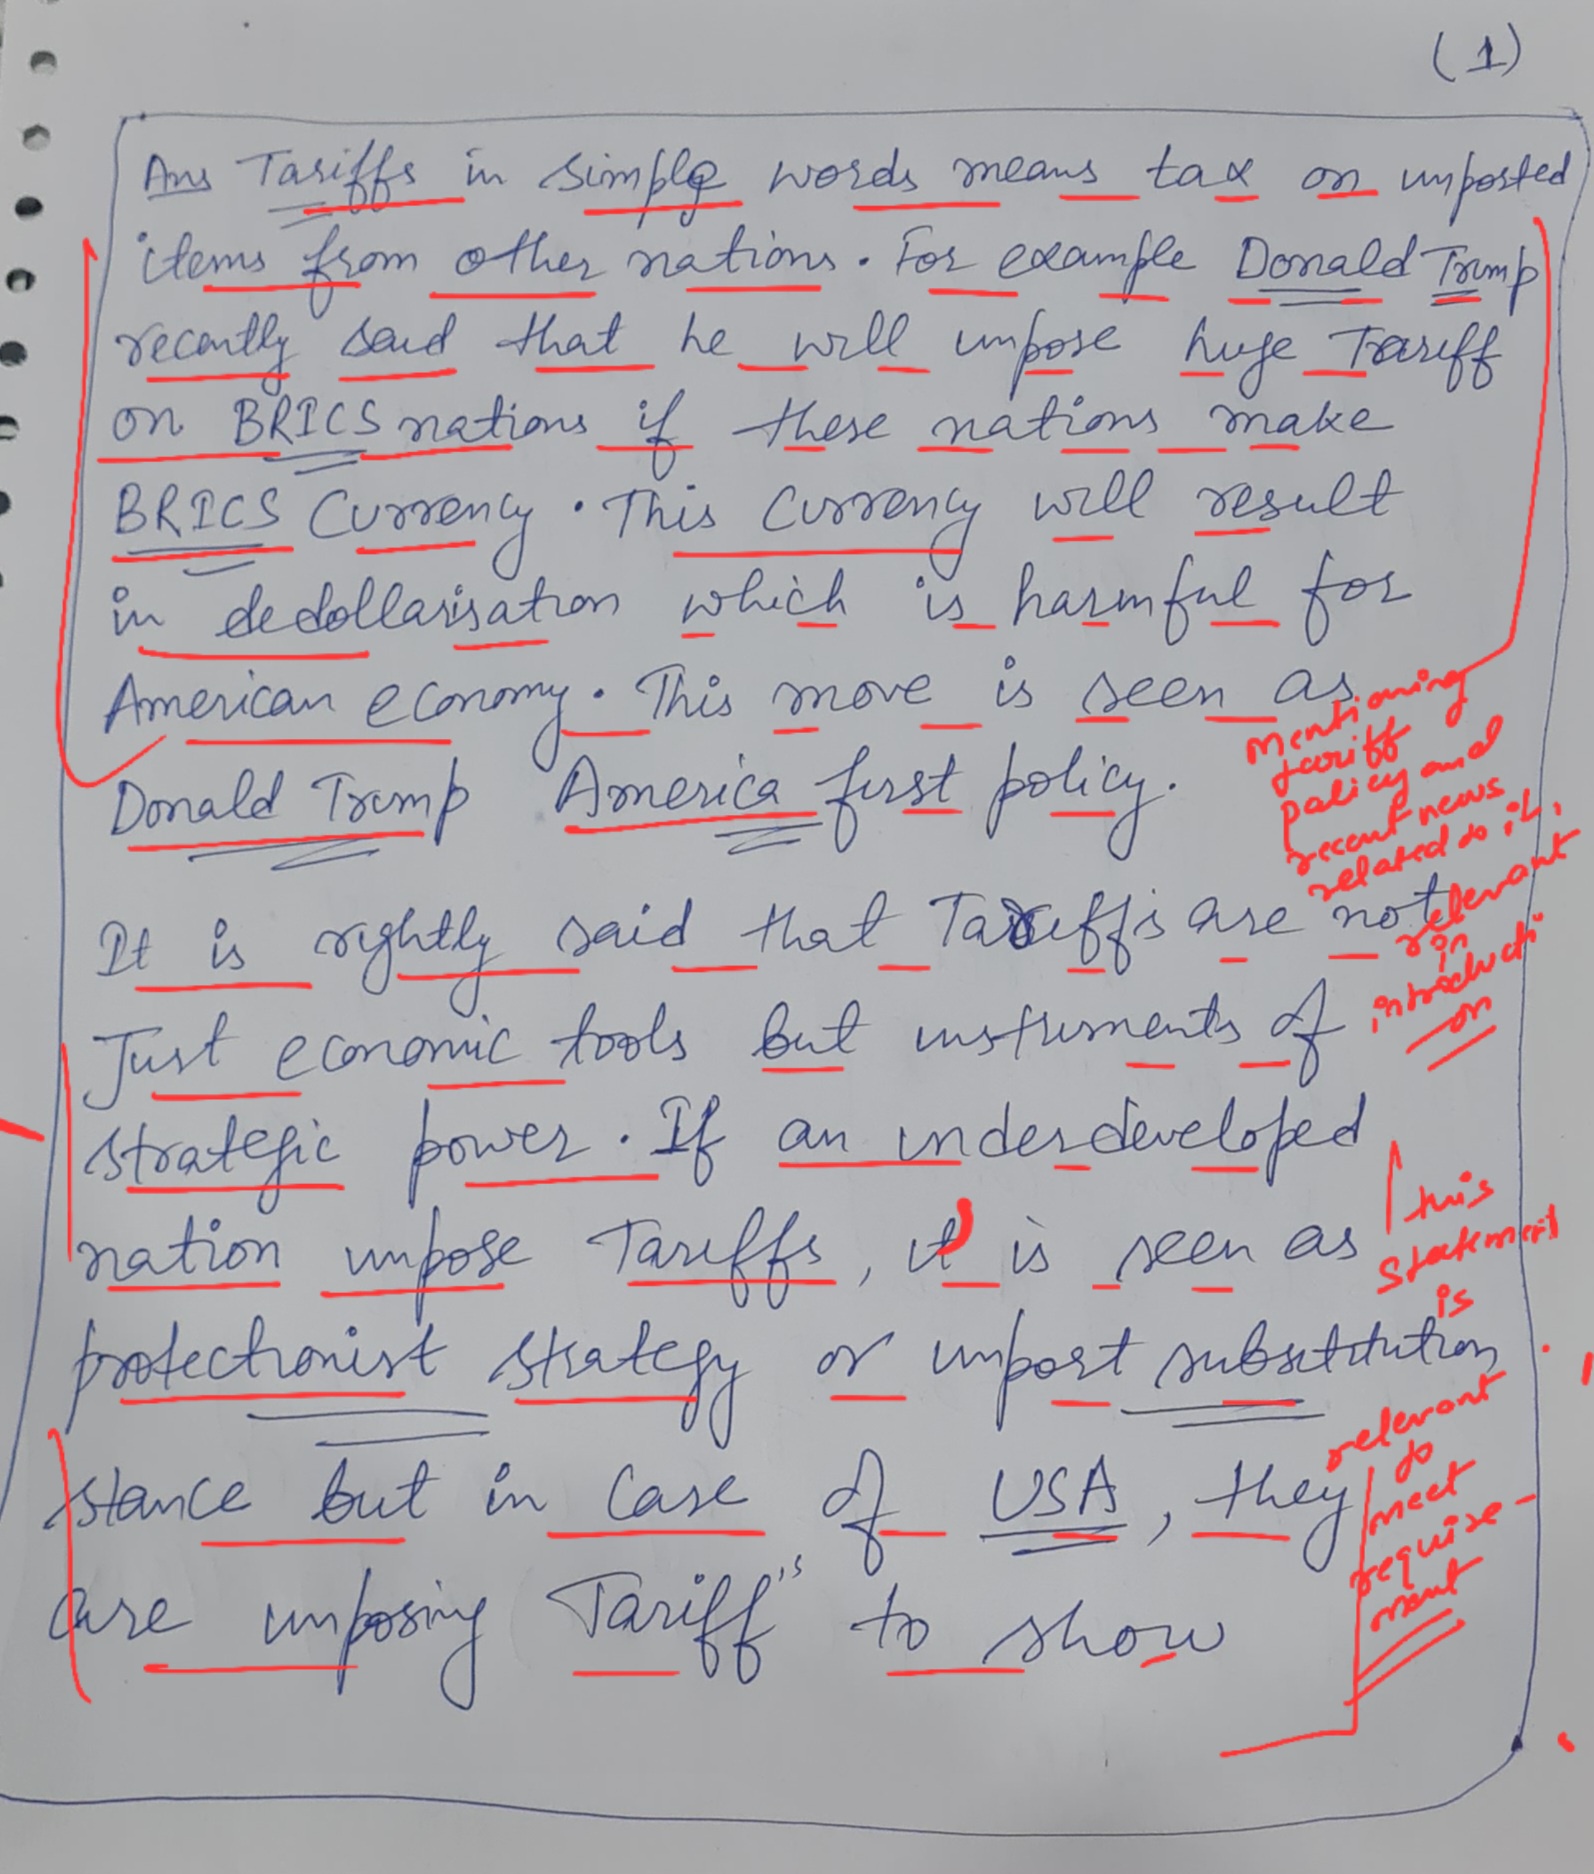 (1)
Ans Tariffs in simple words means tax on imported
items from other nations. For example Donald Trump
recently said that he will impose huge Tariff
on BRICS nations if these nations make
BRICS Currency. This Currency will result
in dedollarisation which is harmful for
American economy. This move is seen as
Donald Trump America first policy.
Mentioning
tariff
policy and
recent news
related to it,
relevant
in
introducti
on
It is rightly said that Tariffs are not
Just economic tools but instruments of
strategic power. If an underdeveloped
nation impose Tariffs, it is seen as
protectionist strategy or import substitution
stance but in case of USA, they
are imposing Tariff's to show
this
statement
is
relevant
to
meet
require-
ment